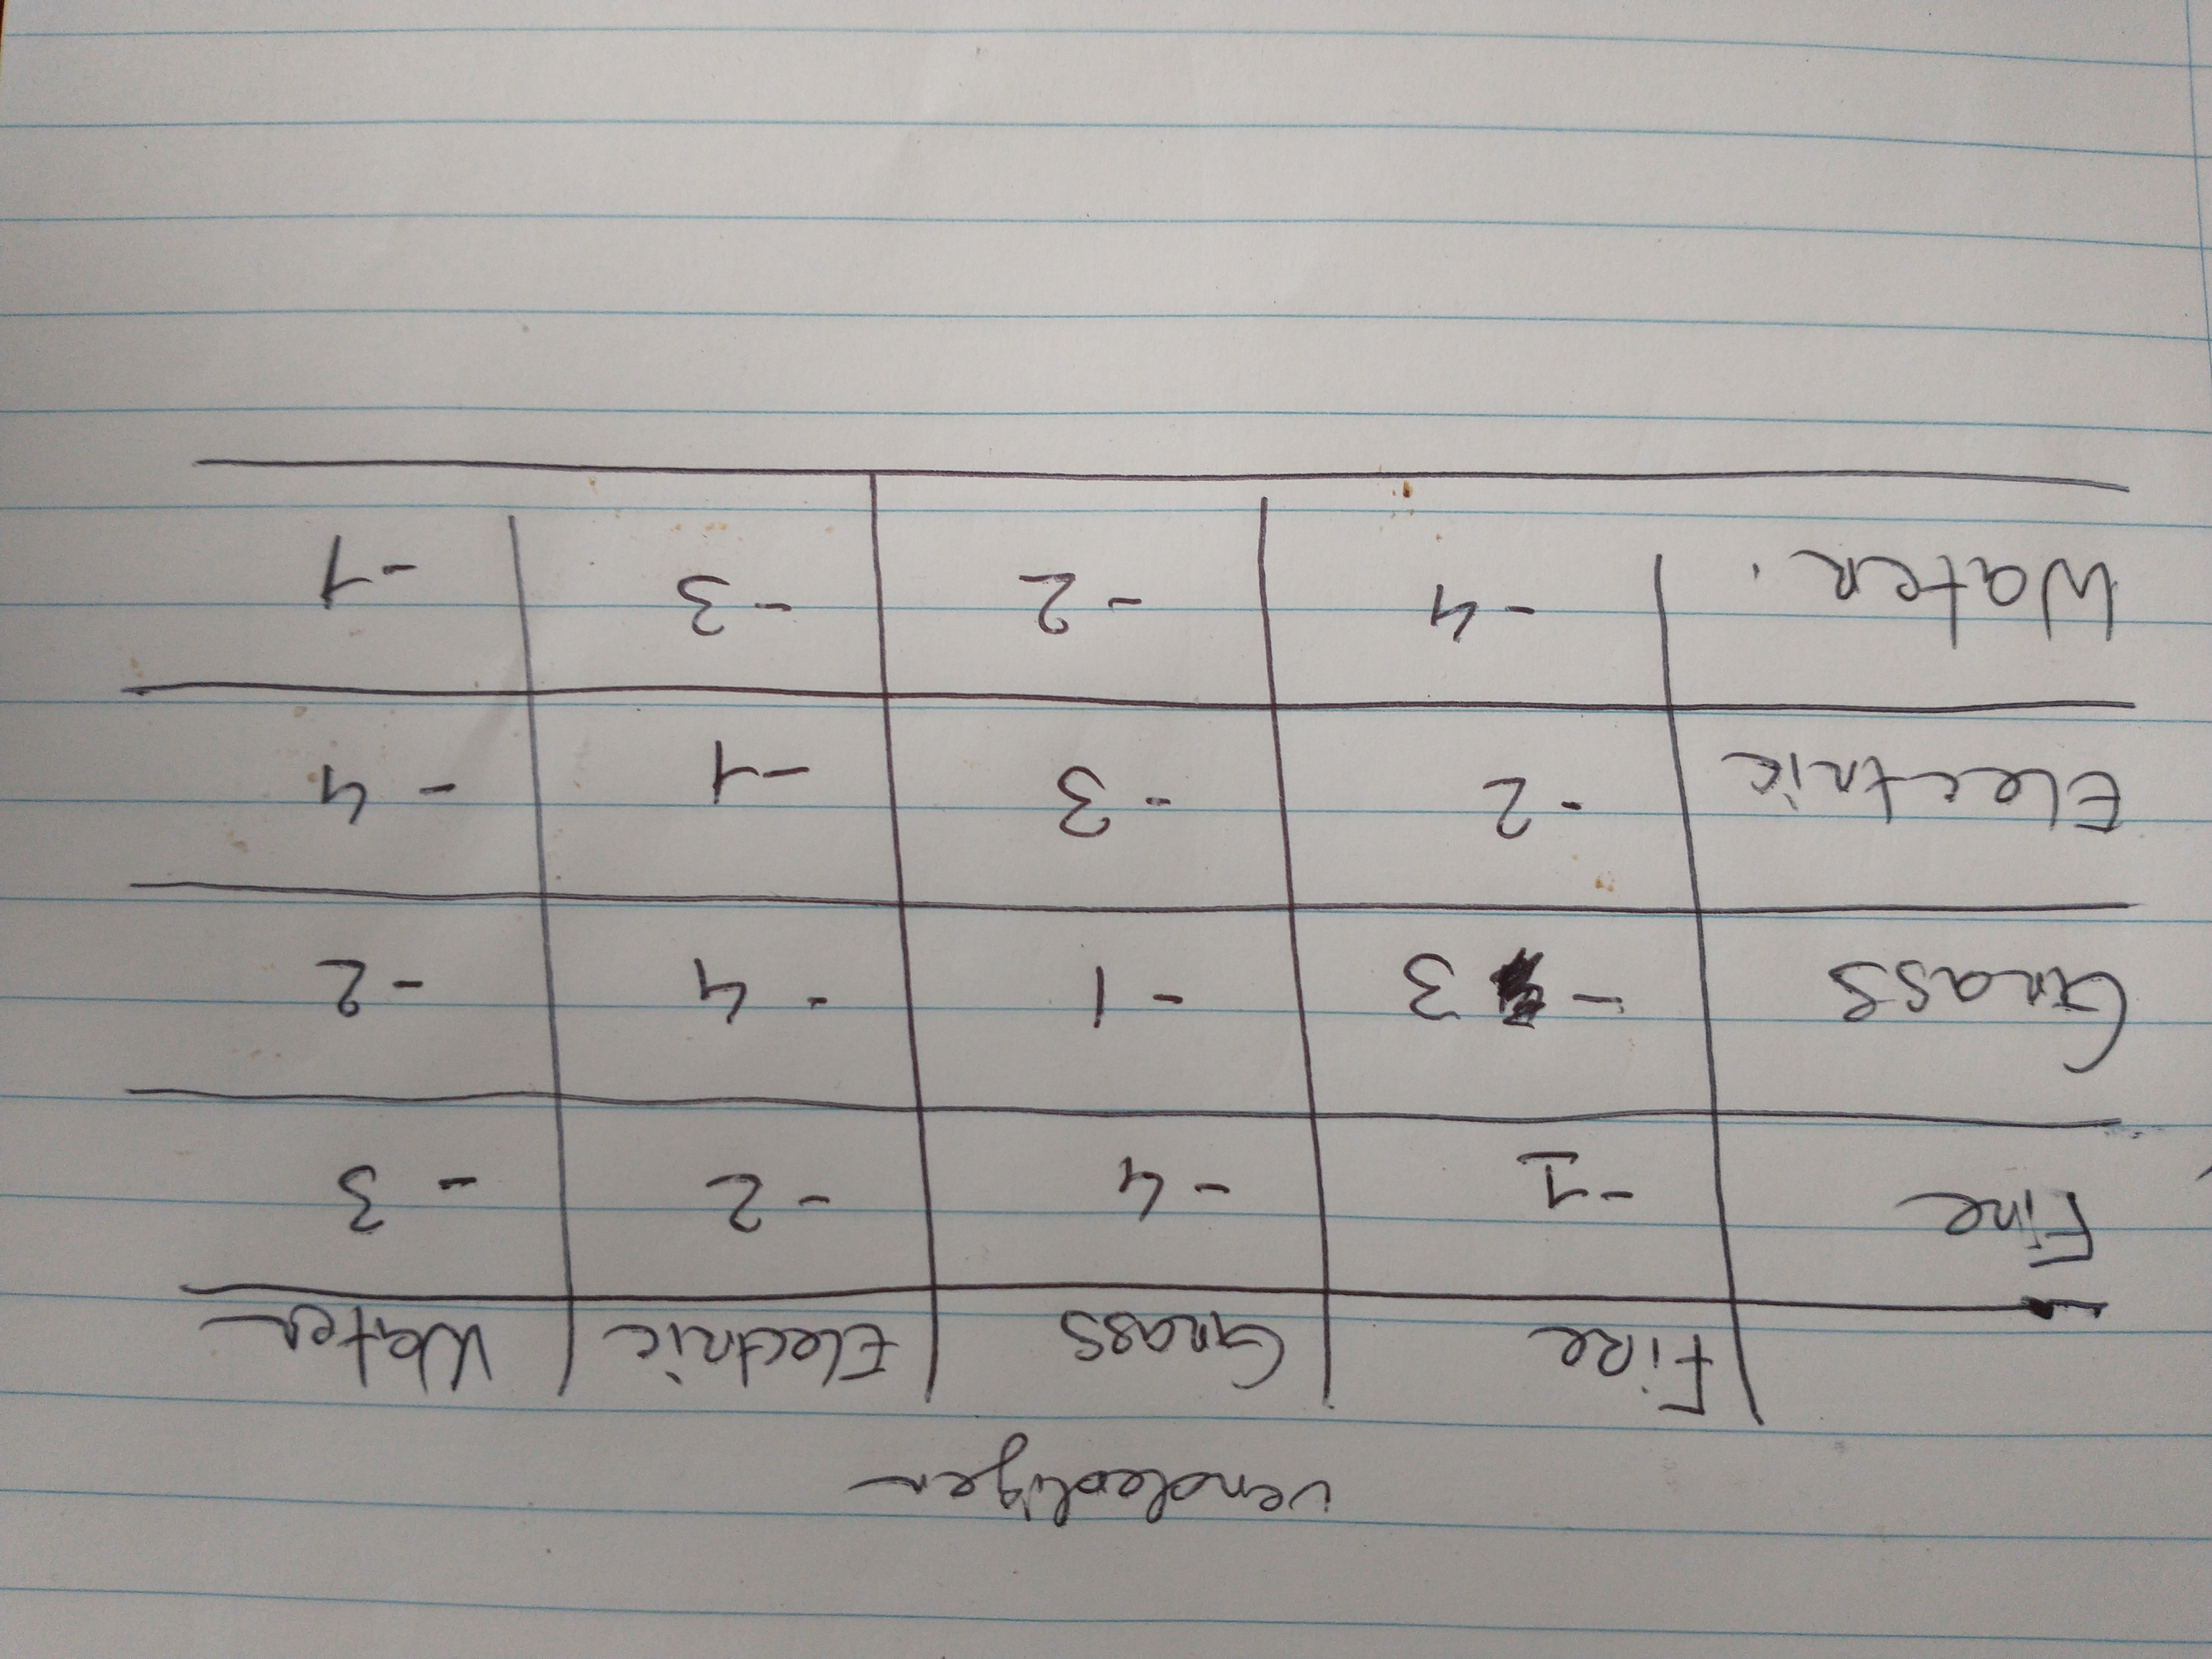 verdedigen
Fire Grass Electric Water
Fire -1 -4 -2 -3
Grass - 3 -1 -4 -2
Electric -2 -3 -1 -4
Water. -4 -2 -3 -1